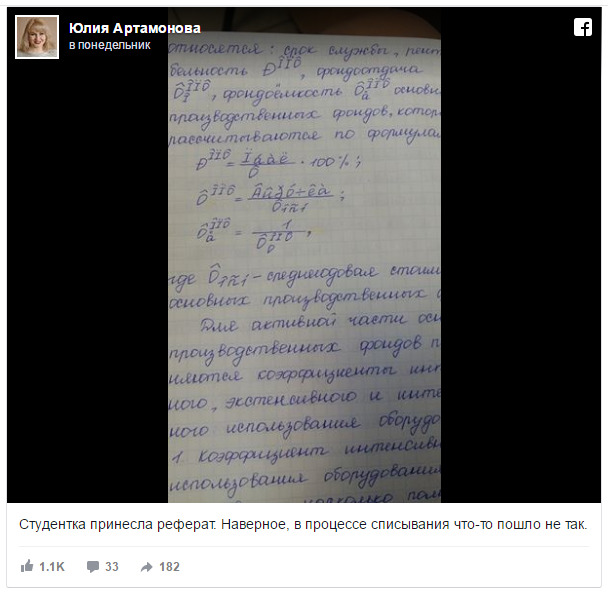 Юлия Артамонова
в понедельник
относятся: срок службы, рент
бельность Ð^ÎÏÔ, фондоотдача
Ô_î^ÎÏÔ, фондоёмкость Ô_å^ÎÏÔ основн
производственных фондов, котор
рассчитываются по формулам
Ð^ÎÏÔ = · 100%;
Ô^ÎÏÔ = ;
Ô_å^ÎÏÔ = 1
где - среднегодовая стоим
основных производственных
Для активной части осн
производственных фондов п
няются коэффициенты инт
ного, экстенсивного и инте
ного использования оборудо
1. Коэффициент интенсивн
использования оборудования
насколько пол
Студентка принесла реферат. Наверное, в процессе списывания что-то пошло не так.
1.1K 33 182